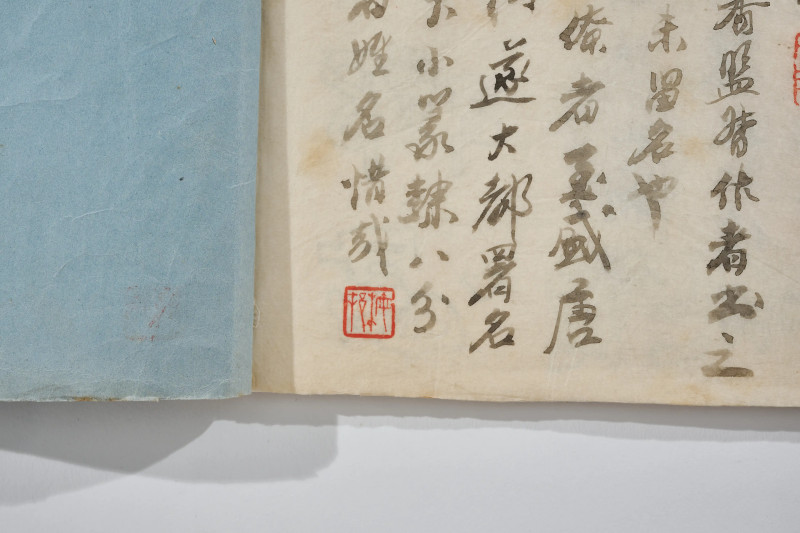 監督作者書之
未留名也
僚者至盛唐
遂大都署名
小篆隸八分
姓名惜哉